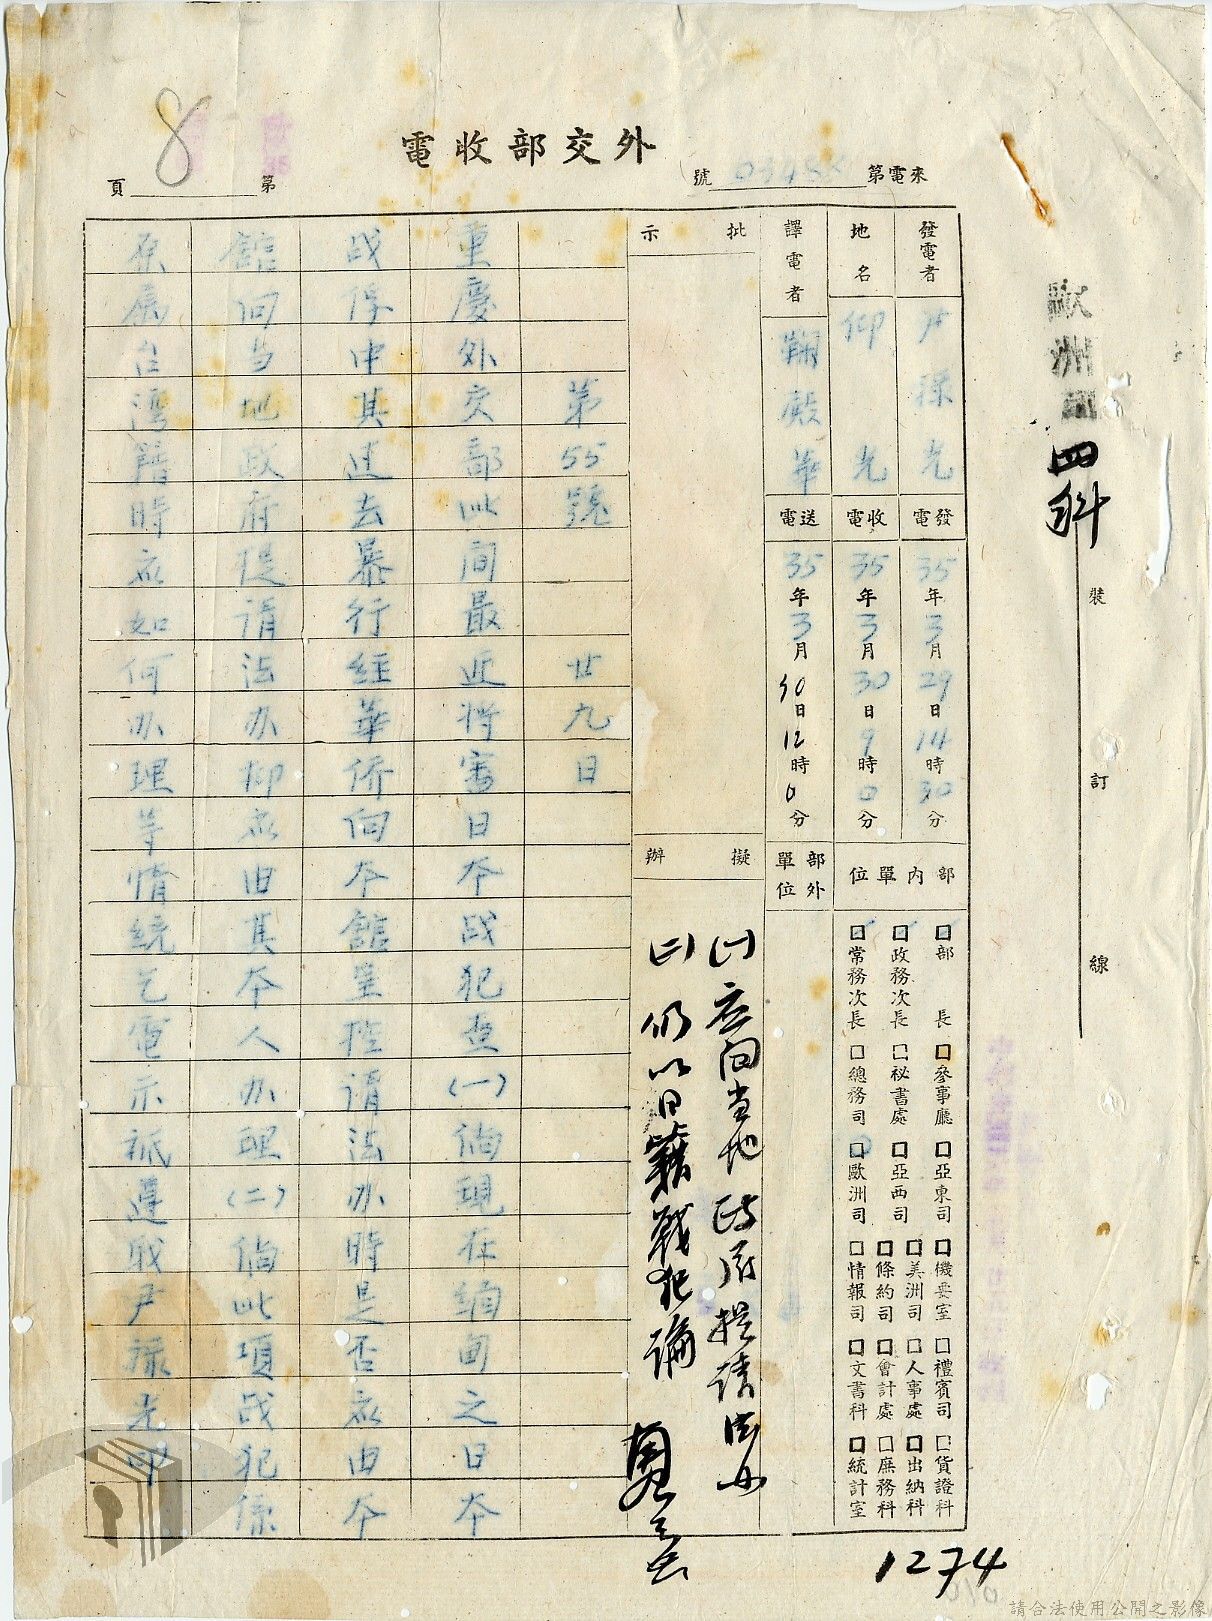 外交部收電
來電第 號
第 8 頁
歐洲司
四科
裝 訂 線
發電者 尹祿光
地名 仰光
譯電者
發電 35年3月29日14時30分
收電 35年3月30日9時0分
送電 35年3月30日12時0分
部內單位
部外單位
部長
政務次長
常務次長
參事廳
祕書處
總務司
亞東司
亞西司
歐洲司
機要室
美洲司
條約司
情報司
禮賓司
人事處
會計處
文書科
貨證科
出納科
庶務科
統計室
批示
擬辦
(一)应向当地政府提請法办
(二)仍以日籍戰犯論
第55號 廿九日
重慶外交部此间最近将審日本战犯查(一)倘現在缅甸之日本
战俘中其过去暴行經華侨向本館呈控請法办時是否应由本
館向当地政府提請法办抑应由其本人办理(二)倘此項战犯係
原屬台灣籍時应如何办理等情統乞電示祇遵职尹祿光叩
1274
請合法使用公開之影像